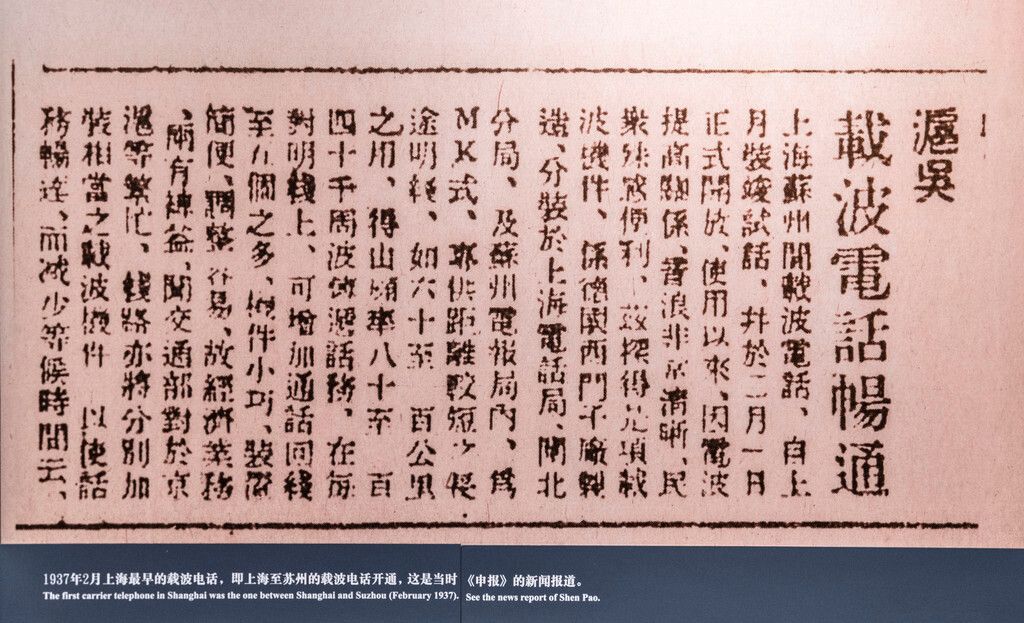 滬吳
載波電話暢通
上海蘇州間載波電話、自上
月裝竣試話、井於二月一日
正式開放、使用以來、因電波
提高關係、音浪非常清晰、民
衆殊感便利、茲探得是項載
波機件、係德國西門子廠製
造、分裝於上海電話局、閘北
分局、及蘇州電報局內、爲
MK式、專供距離較短之長
途明綫、如六十至一百公里
之用、得由頻率八十至一百
四十千周波傳遞話務、在每
對明綫上、可增加通話回綫
至五個之多、機件小巧、裝置
簡便、調整容易、故經濟業務
、兩有裨益、聞交通部對於京
滬等繁忙、綫路亦將分別加
裝相當之載波機件 以使話
務暢達、而減少等候時間云、
1937年2月上海最早的载波电话，即上海至苏州的载波电话开通，这是当时《申报》的新闻报道。
The first carrier telephone in Shanghai was the one between Shanghai and Suzhou (February 1937). See the news report of Shen Pao.